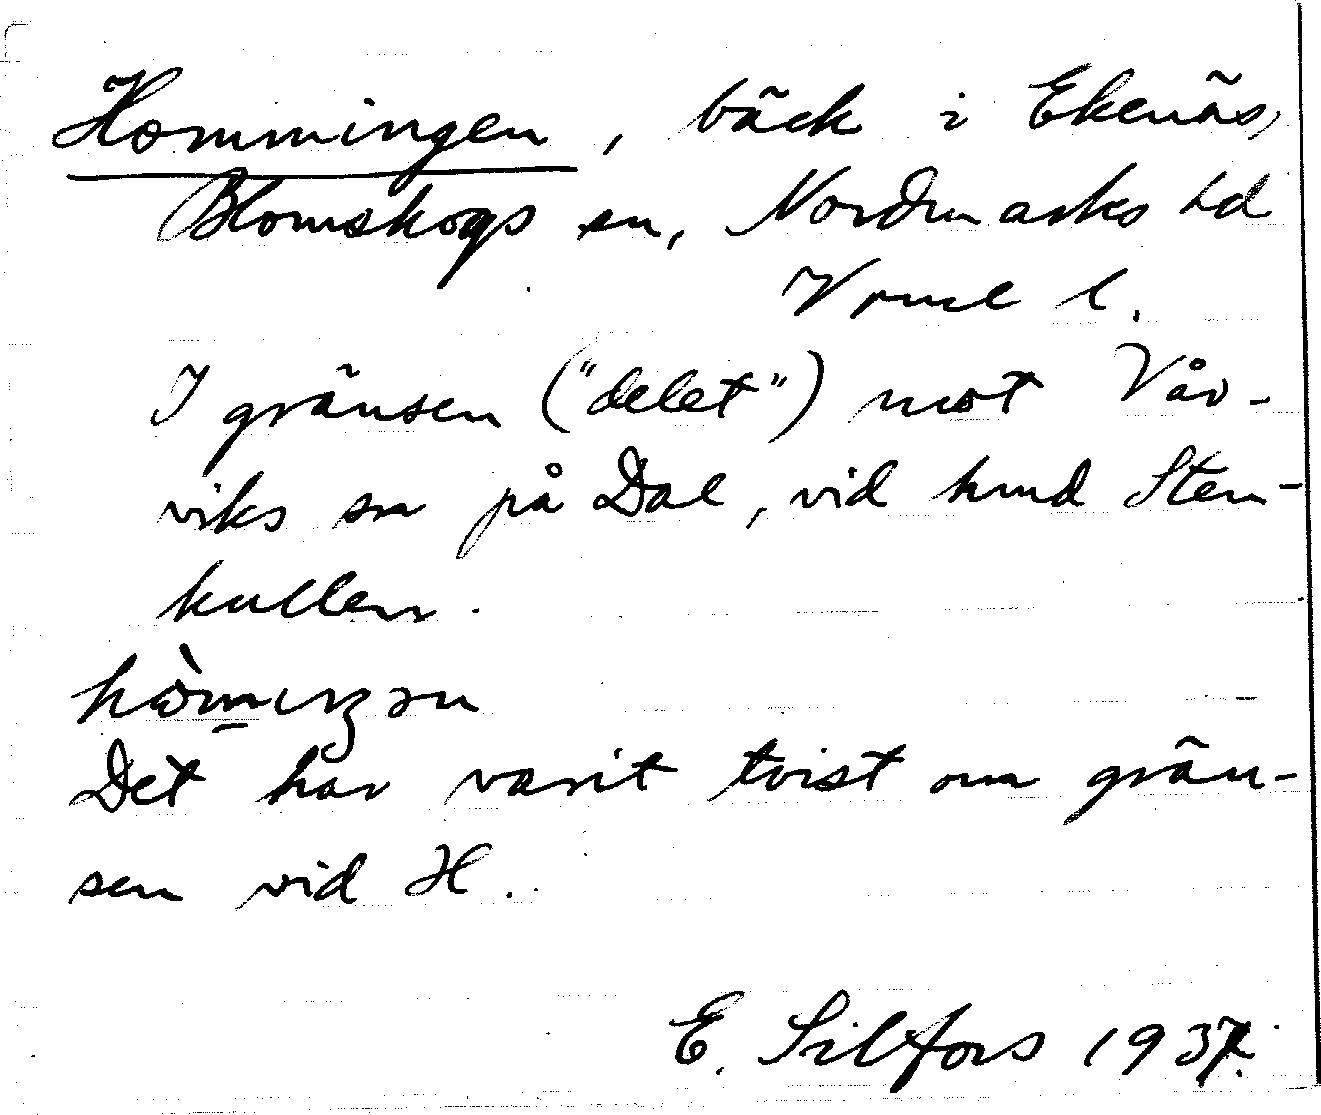 Hommingen, bäck i Ekenäs,
Blomskogs sn, Nordmarks hd
Vrml l.
I gränsen ("delet") mot Vår-
viks sn på Dal, vid hmd Sten-
kullen.
Det har varit tvist om grän-
sen vid H.
E. Silfors 1937.